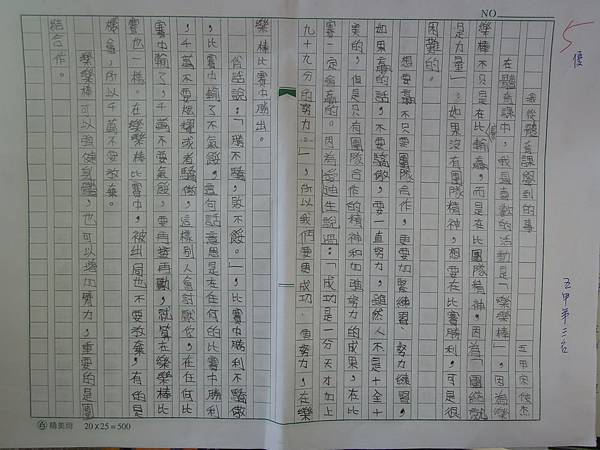 NO.
5
優
五甲第三名
我從體育課學到的事
五甲宋俊杰
在體育課中，我最喜歡的活動是「樂樂棒」，因為樂
樂棒不只是在比輸贏，而是在比團隊精神，因為「團結就
是力量」。如果沒有團隊精神，想要在比賽勝利，可是很
困難的。
想要贏不只要團隊合作，更要加緊練習、努力練習，
如果贏的話，不要驕傲，要一直努力，雖然人不是十全十
美的，但是只有團隊合作的精神和加強努力的成果，在比
賽一定會贏的。因為愛迪生說過：「成功是一分天才加上
九十九分的努力。」，所以我們要更成功、更努力，在樂
樂棒比賽中勝出。
俗話說：「勝不驕，敗不餒。」，比賽中勝利不驕傲
，比賽中輸了不氣餒，這句話意思是在任何的比賽中勝利
，千萬不要炫耀或者驕傲，這樣別人會討厭你，在任何比
賽中輸了，千萬不要氣餒，要再接再勵，就算在樂樂棒比
賽也一樣。在樂樂棒比賽中，被出局也不要放棄，有的是
機會，所以千萬不要放棄。
樂樂棒可以強健身體，也可以增加努力，重要的是團
結合作。
20×25=500